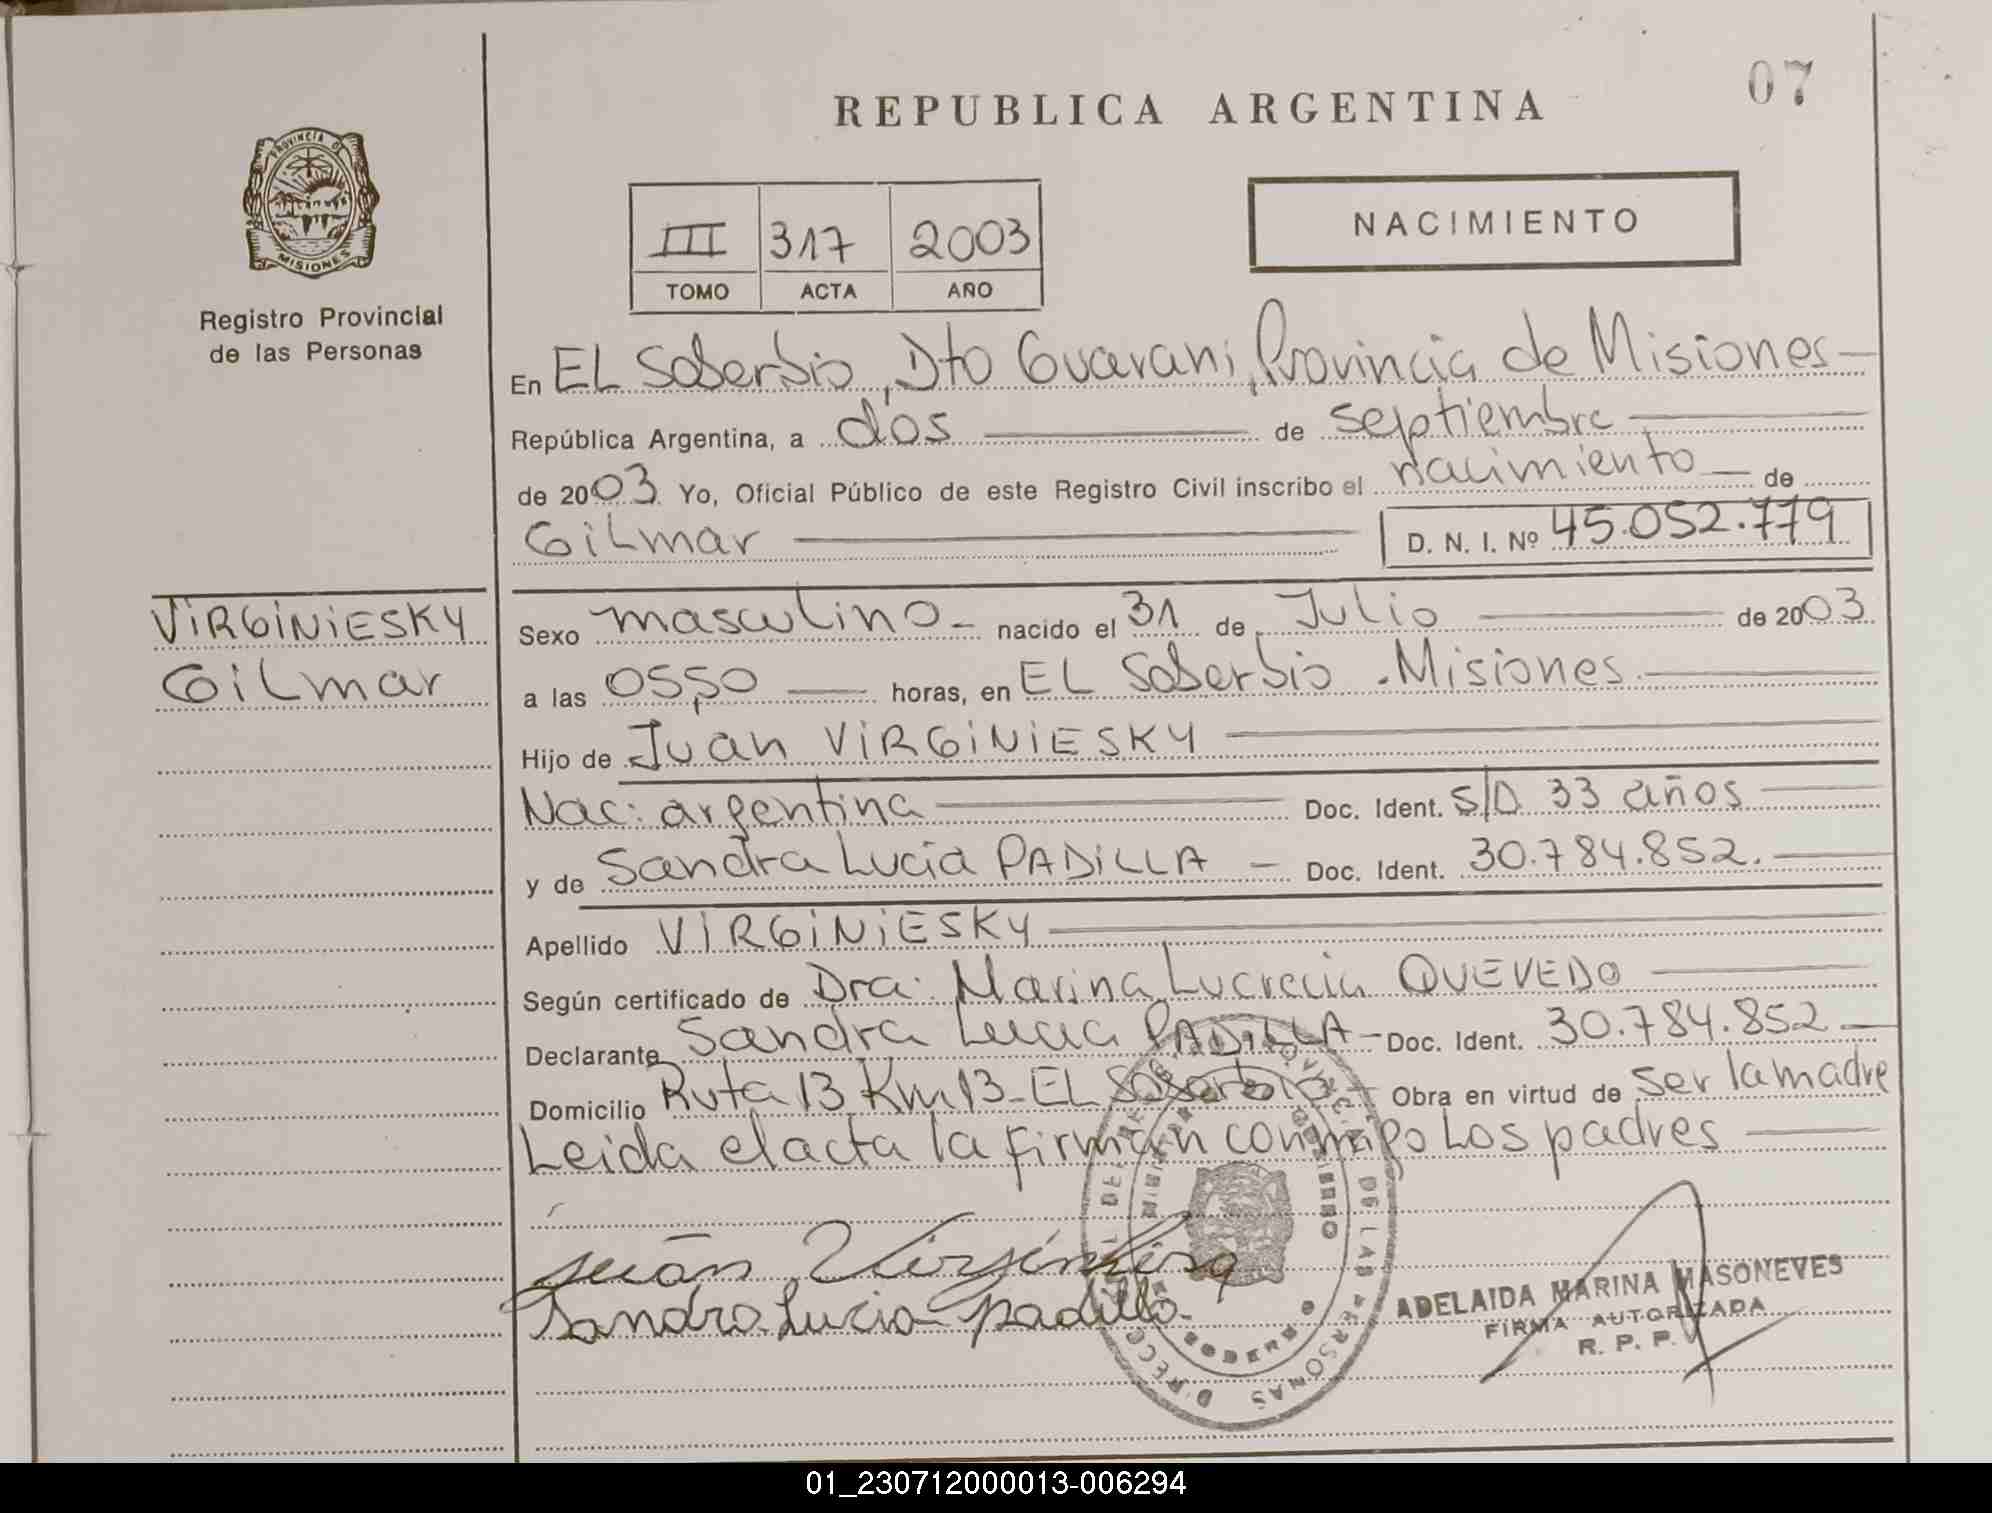 07
REPUBLICA ARGENTINA
PROVINCIA DE
MISIONES
Registro Provincial
de las Personas
III 317 2003
TOMO ACTA AÑO
NACIMIENTO
En EL Soberbio, Dto Guarani, Provincia de Misiones
República Argentina, a dos de septiembre
de 2003 Yo, Oficial Público de este Registro Civil inscribo el nacimiento de
Gilmar D. N. I. Nº 45.052.779
VIRGINIESKY
Gilmar
Sexo masculino nacido el 31 de Julio de 2003
a las 05,50 horas, en EL Soberbio. Misiones
Hijo de Juan VIRGINIESKY
Nac: argentina Doc. Ident. S/D 33 años
y de Sandra Lucia PADILLA Doc. Ident. 30.784.852.
Apellido VIRGINIESKY
Según certificado de Dra. Marina Lucrecia QUEVEDO
Declarante Sandra Lucia PADILLA Doc. Ident. 30.784.852
Domicilio Ruta 13 Km 13 - EL Soberbio Obra en virtud de ser la madre
Leida el acta la firman conmigo Los padres
Sandra Lucia padilla
ADELAIDA MARINA MASONEVES
FIRMA AUTORIZADA
R. P. P.
01_230712000013-006294